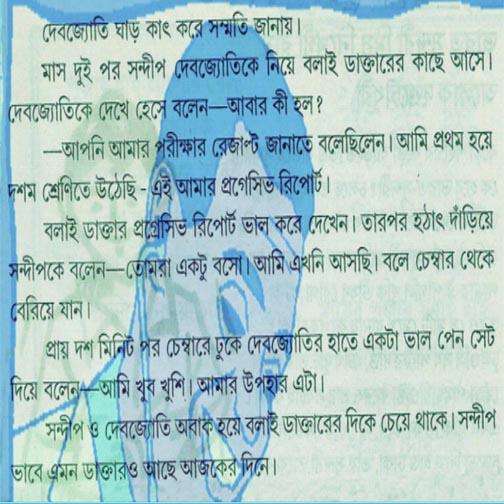 দেবজ্যোতি ঘাড় কাৎ করে সম্মতি জানায়।
মাস দুই পর সন্দীপ দেবজ্যোতিকে নিয়ে বলাই ডাক্তারের কাছে আসে।
দেবজ্যোতিকে দেখে হেসে বলেন—আবার কী হল?
—আপনি আমার পরীক্ষার রেজাল্ট জানাতে বলেছিলেন। আমি প্রথম হয়ে
দশম শ্রেণিতে উঠেছি - এই আমার প্রগেসিভ রিপোর্ট।
বলাই ডাক্তার প্রগ্রেসিভ রিপোর্ট ভাল করে দেখেন। তারপর হঠাৎ দাঁড়িয়ে
সন্দীপকে বলেন—তোমরা একটু বসো। আমি এখনি আসছি। বলে চেম্বার থেকে
বেরিয়ে যান।
প্রায় দশ মিনিট পর চেম্বারে ঢুকে দেবজ্যোতির হাতে একটা ভাল পেন সেট
দিয়ে বলেন—আমি খুব খুশি। আমার উপহার এটা।
সন্দীপ ও দেবজ্যোতি অবাক হয়ে বলাই ডাক্তারের দিকে চেয়ে থাকে। সন্দীপ
ভাবে এমন ডাক্তারও আছে আজকের দিনে।